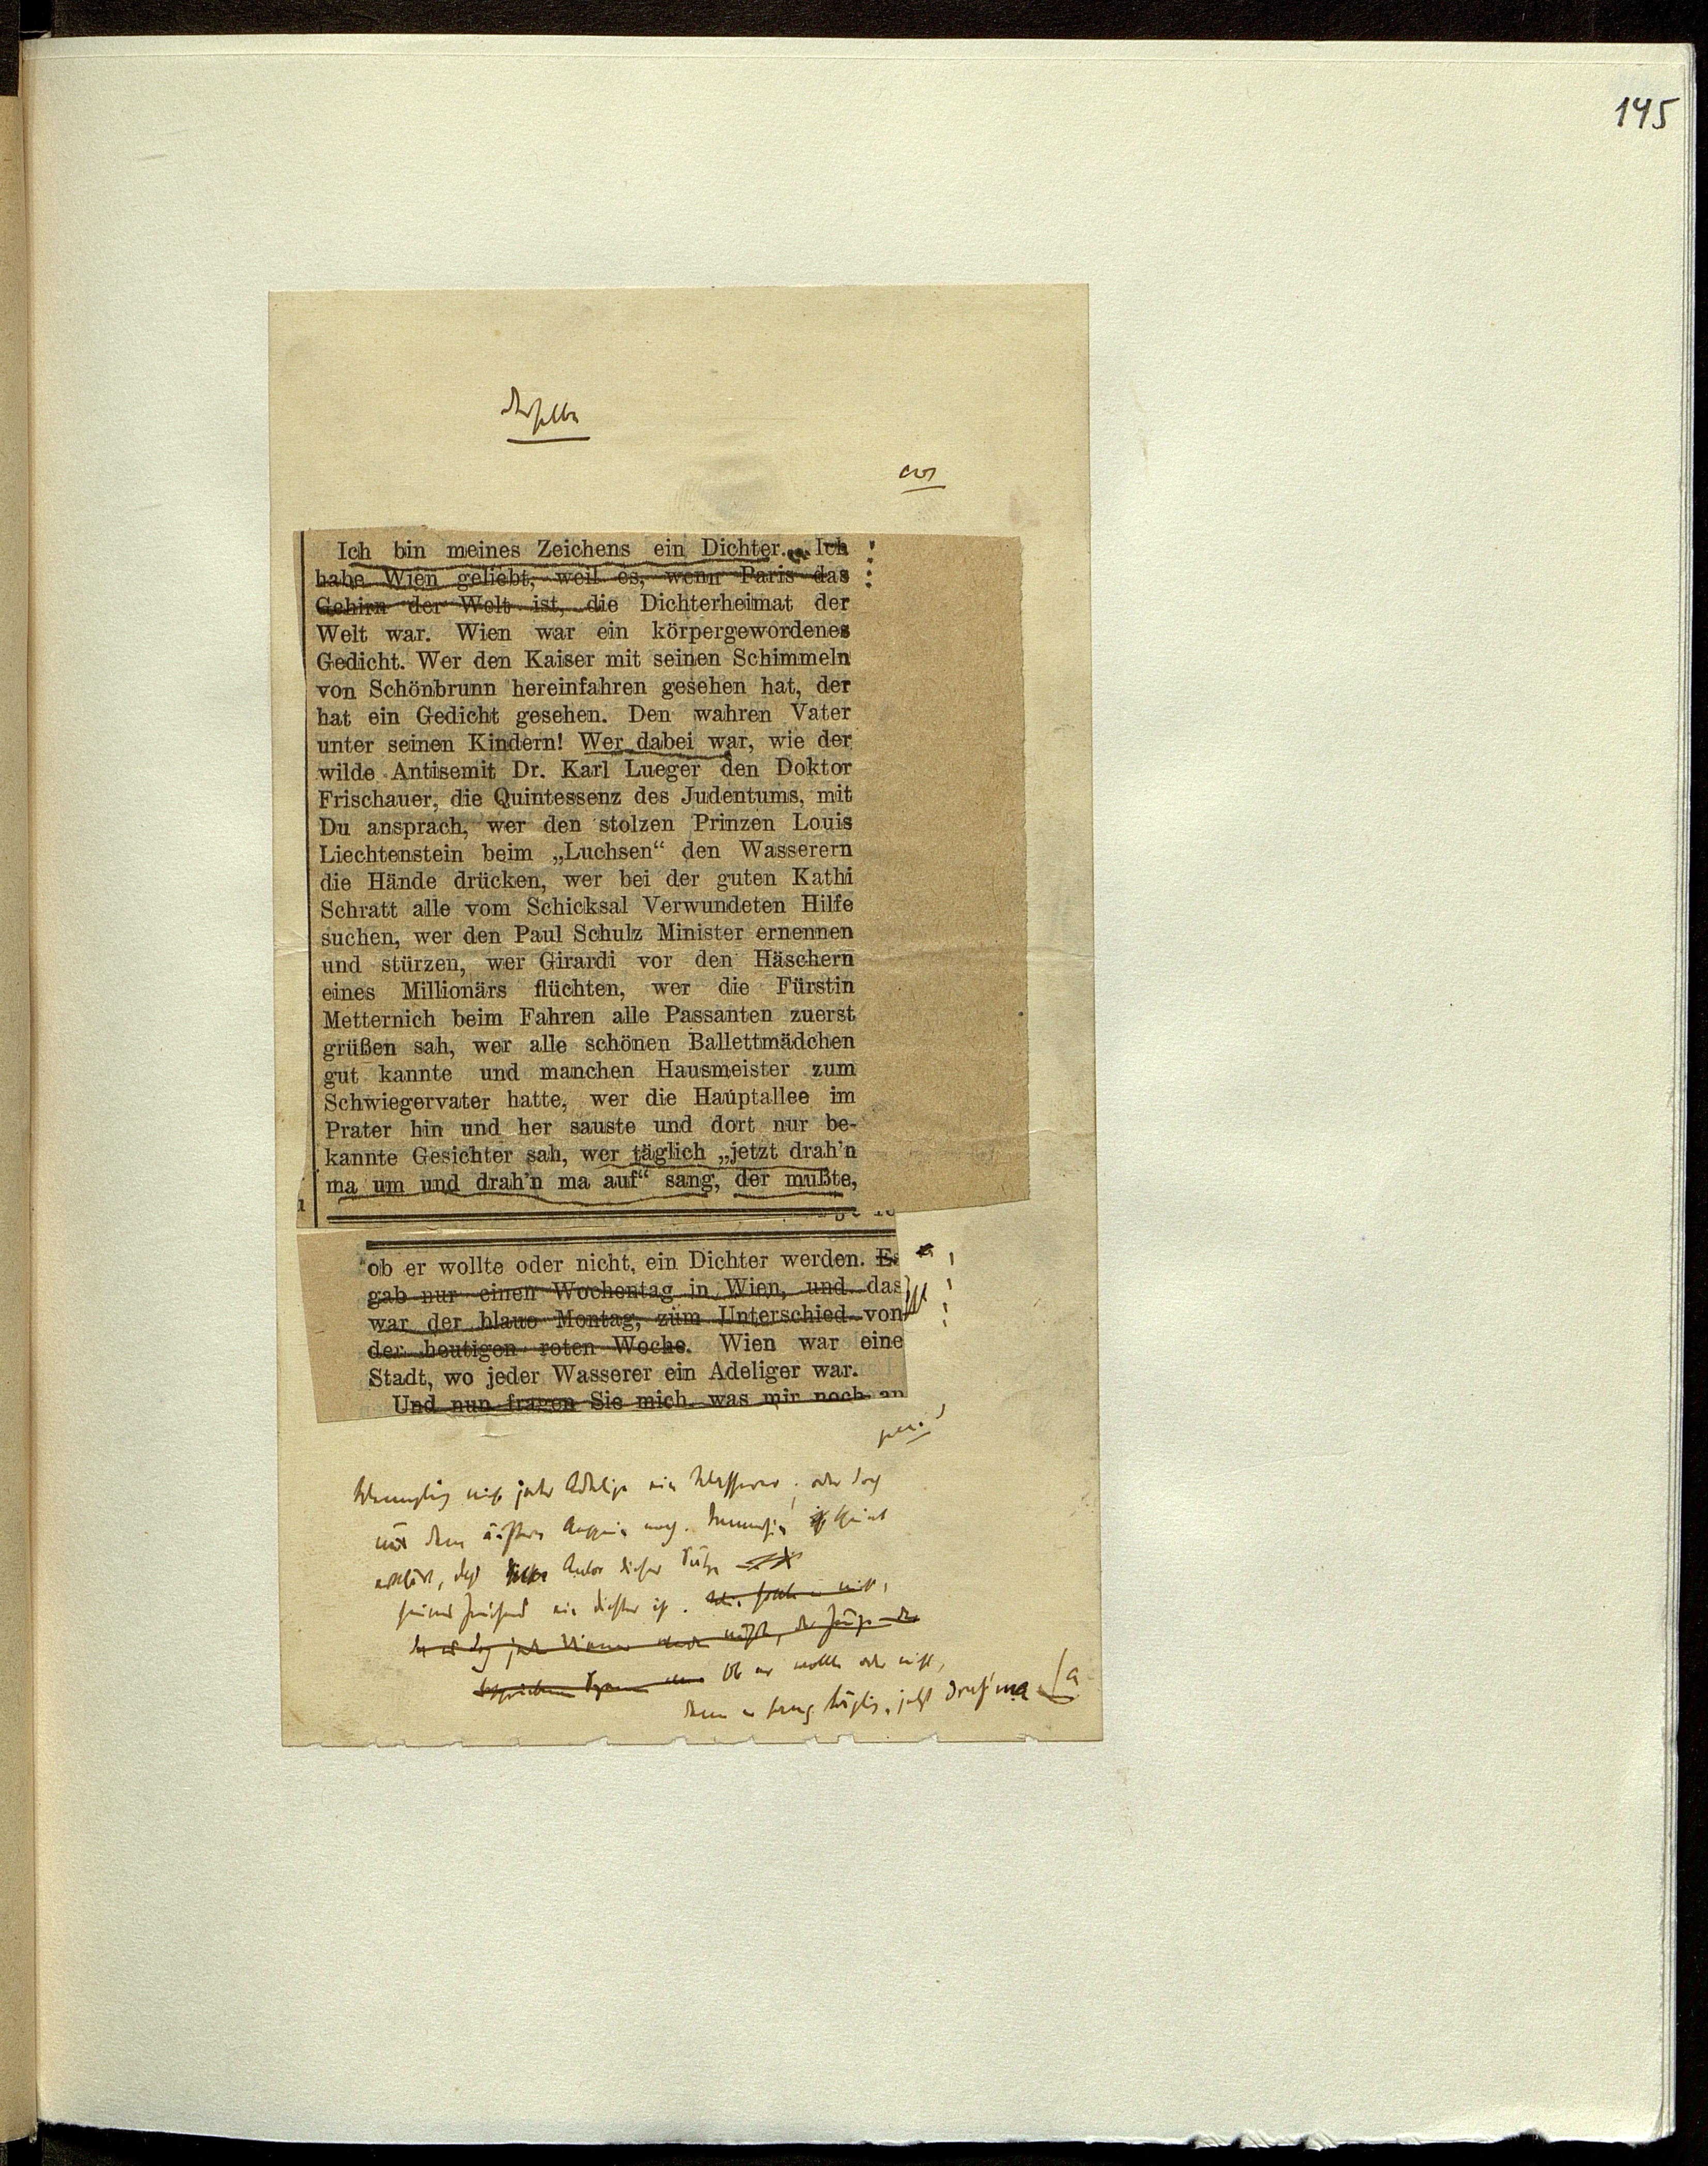 145
derselbe
Ich bin meines Zeichens ein Dichter... Ich
habe Wien geliebt, weil es, wenn Paris das
Gehirn der Welt ist, die Dichterheimat der
Welt war. Wien war ein körpergewordenes
Gedicht. Wer den Kaiser mit seinen Schimmeln
von Schönbrunn hereinfahren gesehen hat, der
hat ein Gedicht gesehen. Den wahren Vater
unter seinen Kindern! Wer dabei war, wie der
wilde Antisemit Dr. Karl Lueger den Doktor
Frischauer, die Quintessenz des Judentums, mit
Du ansprach, wer den stolzen Prinzen Louis
Liechtenstein beim „Luchsen“ den Wasserern
die Hände drücken, wer bei der guten Kathi
Schratt alle vom Schicksal Verwundeten Hilfe
suchen, wer den Paul Schulz Minister ernennen
und stürzen, wer Girardi vor den Häschern
eines Millionärs flüchten, wer die Fürstin
Metternich beim Fahren alle Passanten zuerst
grüßen sah, wer alle schönen Ballettmädchen
gut kannte und manchen Hausmeister zum
Schwiegervater hatte, wer die Hauptallee im
Prater hin und her sauste und dort nur be-
kannte Gesichter sah, wer täglich „jetzt drah'n
ma um und drah'n ma auf“ sang, der mußte,
ob er wollte oder nicht, ein Dichter werden. Es
gab nur einen Wochentag in Wien, und das
war der blaue Montag, zum Unterschied von
der heutigen roten Woche. Wien war eine
Stadt, wo jeder Wasserer ein Adeliger war.
Und nun fragen Sie mich, was mir noch an
Wenngleich nicht jeder Adelige ein Wasserer, oder doch
nur dem äußern Ansehn nach. Immerhin scheint
erklärt, daß Autor dieser Sätze
seines Zeichens ein Dichter ist.
Ob er wollte oder nicht,
denn er sang täglich, jetzt drah'n ma